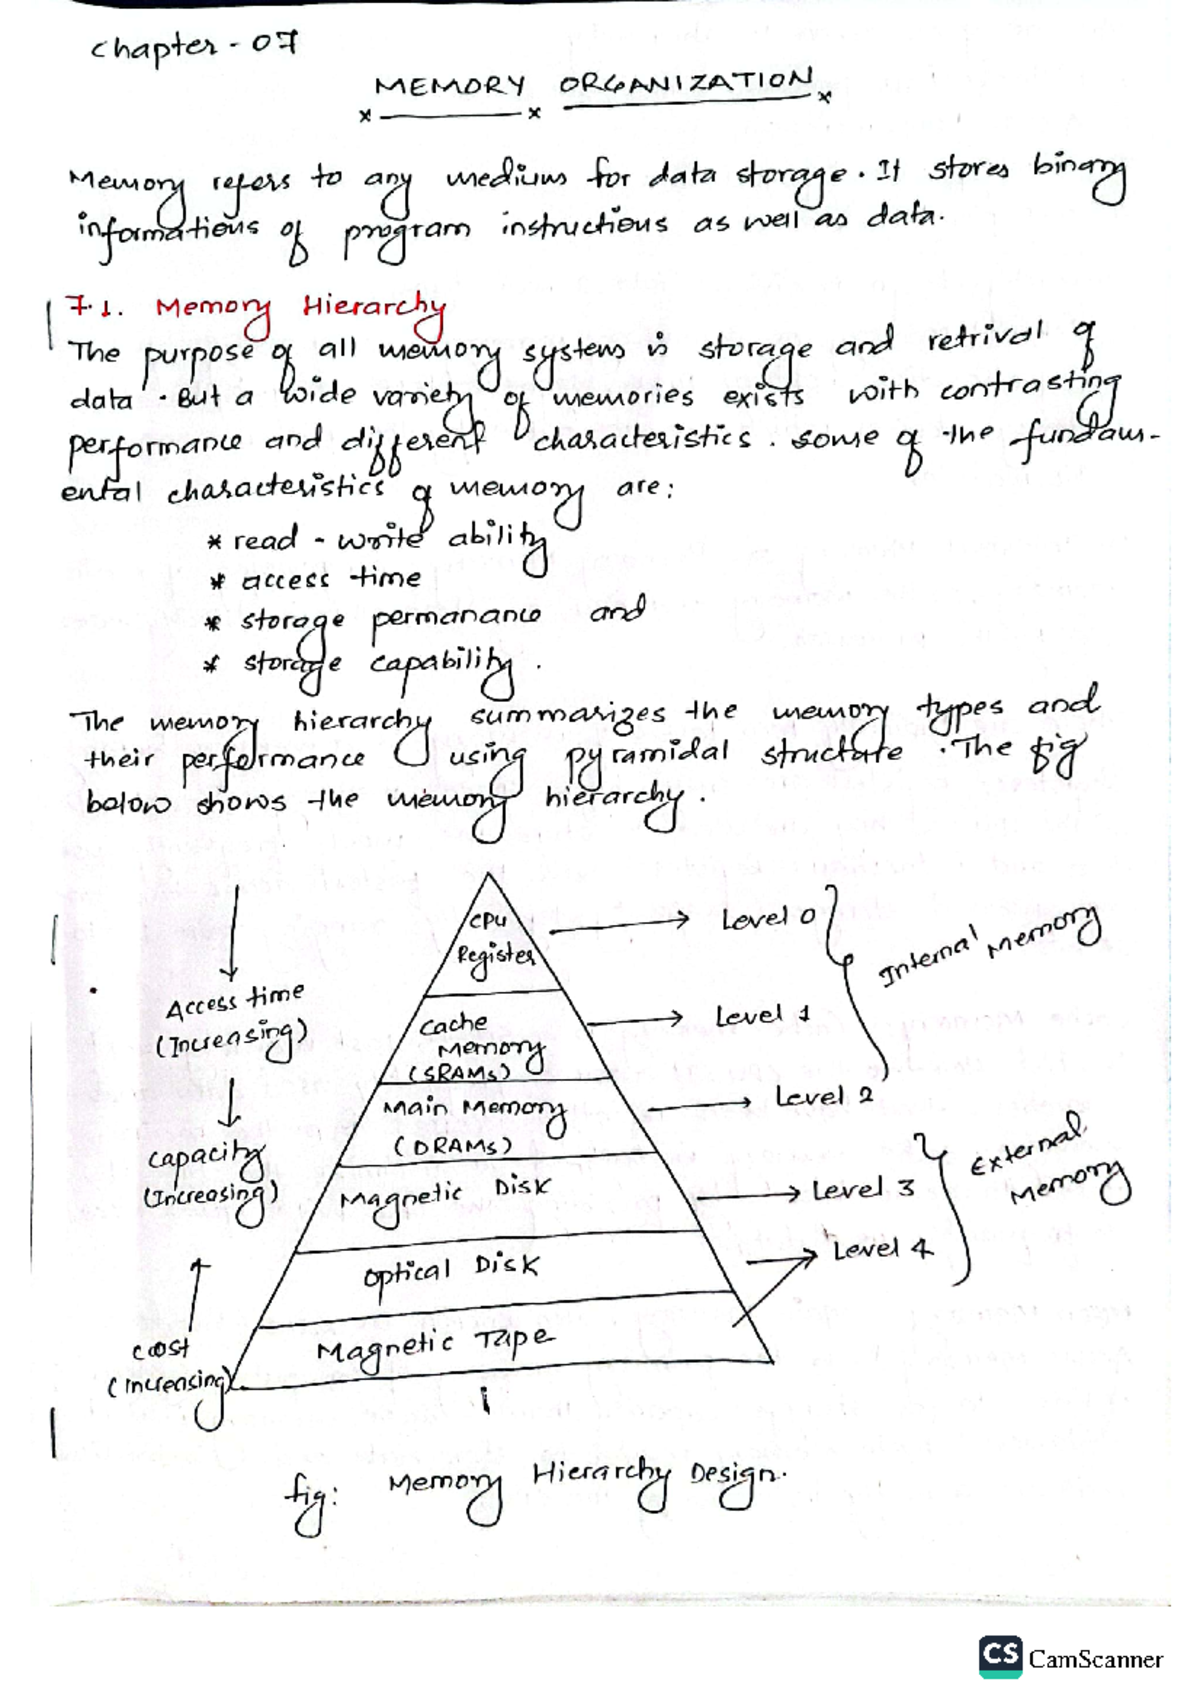 Chapter - 07
MEMORY ORGANIZATION
Memory refers to any medium for data storage. It stores binary
informations of program instructions as well as data.
7.1. Memory Hierarchy
The purpose of all memory systems is storage and retrival of
data. But a wide variety of memories exists with contrasting
performance and different characteristics. Some of the fundam-
ental characteristics of memory are:
* read - write ability
* access time
* storage permanance and
* storage capability.
The memory hierarchy summarizes the memory types and
their performance using pyramidal structure. The fig
below shows the memory hierarchy.
CPU
Register
Level 0
Internal Memory
Access time
(Increasing)
Cache
Memory
(SRAMs)
Level 1
Main Memory
(DRAMs)
Level 2
Capacity
(Increasing)
Magnetic Disk
Level 3
External
Memory
Optical Disk
Level 4
Cost
(Increasing)
Magnetic Tape
fig: Memory Hierarchy Design.
CS CamScanner